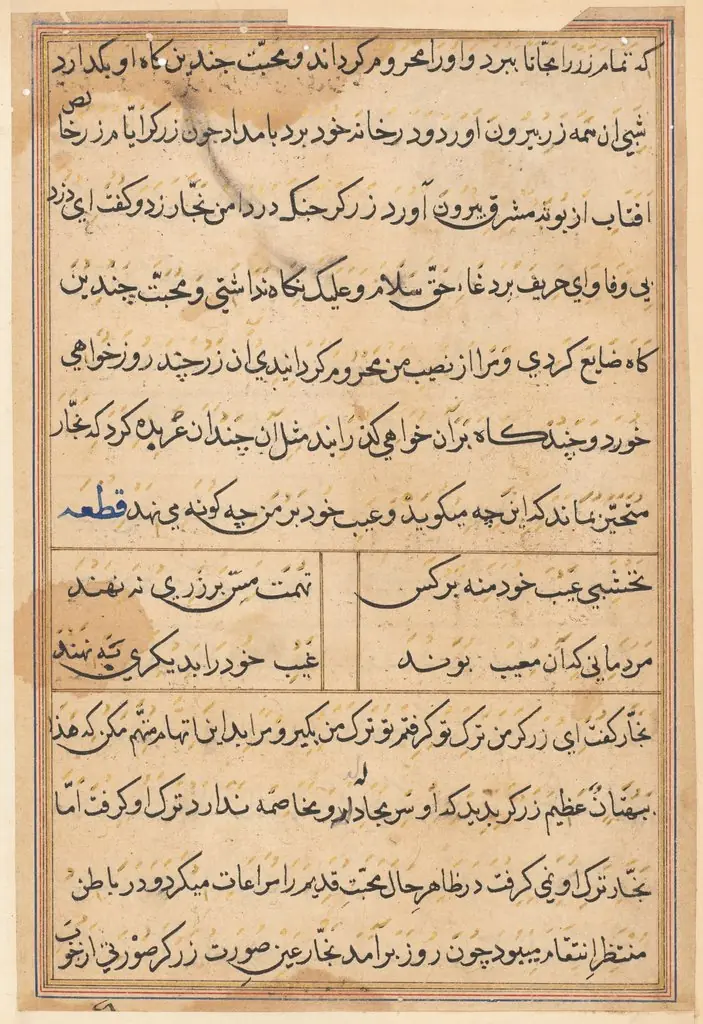 که تمام زر را مجّانا ببرد و او را محروم کرداند و محبّت چندین کاه او بکدارد
شبی آن همه زر بیرون اورد و در خانه خود برد بامداد چون زرکر ایّام زر خالص
افتاب از بوته مشرق بیرون آورد زرکر چنک در دامن نجّار زد و کفت ای دزد
بی وفا و ای حریف بر دغا، حقّ سلام و علیک نکاه نداشتی و محبّت چندین
کاه ضایع کردی و مرا از نصیب من محروم کردانیدی ان زر چند روز خواهی
خورد و چند کاه بر آن خواهی کذرانید مثل آن چندان عربده کرد که نجّار
متحیّر بماند که این چه میکوید و عیب خود بر من چه کونه می نهد قطعه
نخشبی عیب خود منه بر کس تهمت مس بر زری نه نهند
مردمانی که آن معیب بوند عیب خود را بدیکری به نهند
نجّار کفت ای زرکر من ترک تو کرفتم تو ترک من بکیر و مرا بدین اتهام متّهم مکن که هذا
بهتانٌ عظیم زرکر بدید که او سر مجادله و مخاصمه ندارد ترک او کرفت امّا
نجّار ترک او نمی کرفت در ظاهر حال محبّت قدیم را مراعات میکرد و در باطن
منتظر انتقام میبود چون روز برآمد نجّار عین صورت زرکر صورتی از خوب